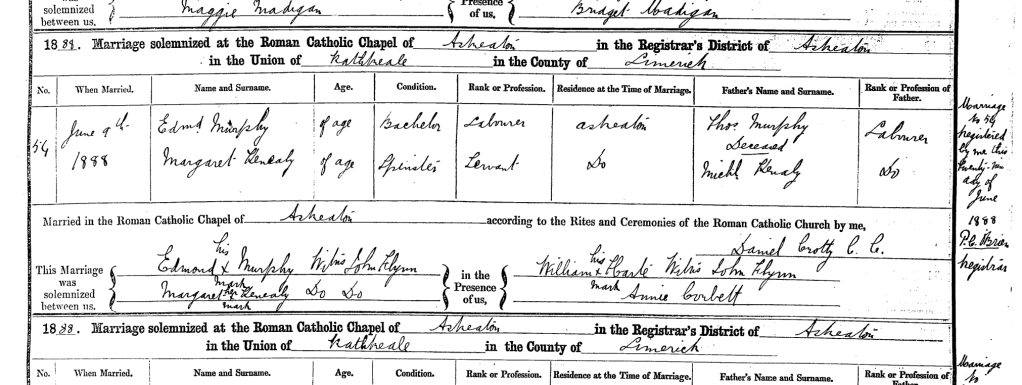 solemnized between us, { Maggie Madigan } Presence of us, { Bridget Madigan
1888. Marriage solemnized at the Roman Catholic Chapel of Askeaton in the Registrar's District of Askeaton
in the Union of Rathkeale in the County of Limerick
No. When Married. Name and Surname. Age. Condition. Rank or Profession. Residence at the Time of Marriage. Father's Name and Surname. Rank or Profession of Father.
54 June 9th 1888
Edmd Murphy of age Bachelor Labourer Askeaton Thos Murphy Deceased Labourer
Margaret Kenealy of age Spinster Servant Do Michl Kenaly Do
Married in the Roman Catholic Chapel of Askeaton according to the Rites and Ceremonies of the Roman Catholic Church by me,
Daniel Crotty C. C.
This Marriage was solemnized between us, { Edmond his x mark Murphy Witns John Flynn
Margaret her x mark Kenealy Do Do
in the Presence of us, { William his x mark Hoarle Witns John Flynn
Annie Corbett
Marriage
No 54
registered
by me this
day of
June
1888
P. C. O'Brien
registrar
1888. Marriage solemnized at the Roman Catholic Chapel of Askeaton in the Registrar's District of Askeaton
in the Union of Rathkeale in the County of Limerick
No. When Married. Name and Surname. Age. Condition. Rank or Profession. Residence at the Time of Marriage. Father's Name and Surname. Rank or Profession of Father.
Marriage
No